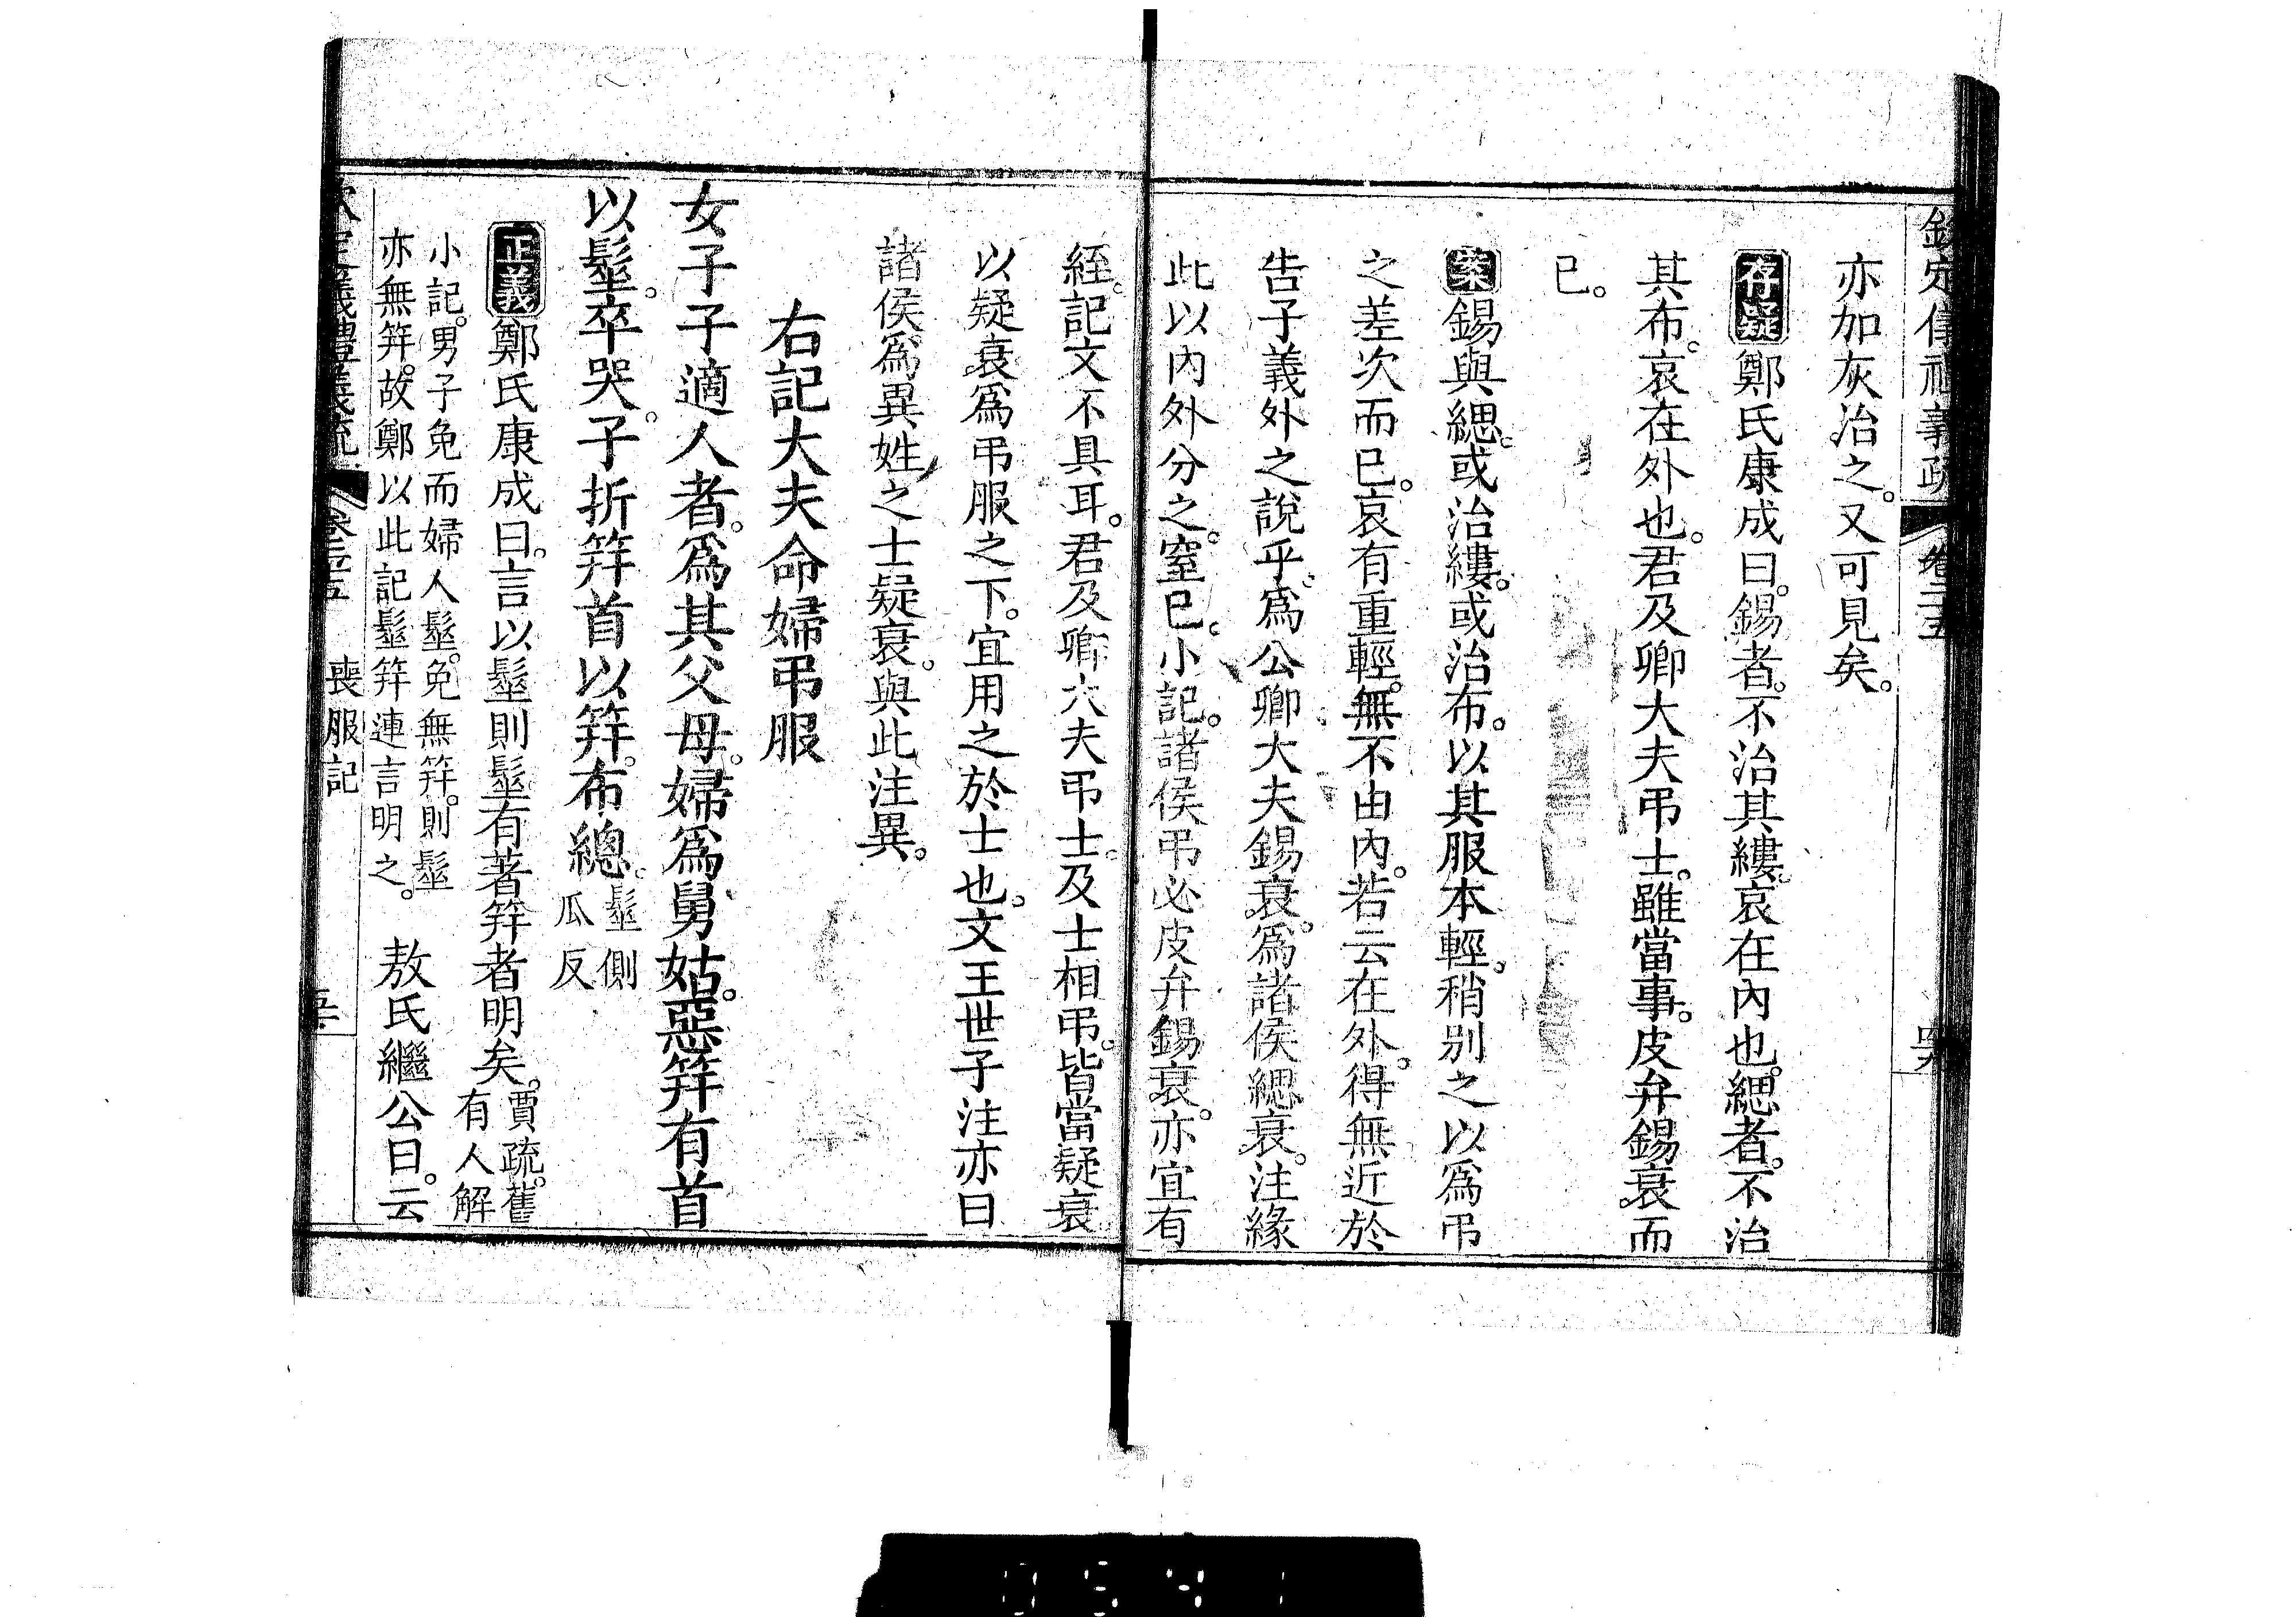 欽定儀禮義疏 卷二五
亦加灰治之。又可見矣。
存疑鄭氏康成曰。錫者。不治其縷。哀在內也。緦者。不治
其布。哀在外也。君及卿大夫弔士。雖當事。皮弁錫衰而
已。
案錫與緦。或治縷。或治布。以其服本輕。稍別之以爲弔
之差次而已。哀有重輕。無不由內。若云在外。得無近於
告子義外之說乎。爲公卿大夫錫衰。爲諸侯緦衰。注緣
此以內外分之。窒已。小記。諸侯弔必皮弁錫衰。亦宜有
絰。記文不具耳。君及卿大夫弔士。及士相弔。皆當疑衰
以疑衰爲弔服之下。宜用之於士也。文王世子注亦曰
諸侯爲異姓之士疑衰。與此注異。
右記大夫命婦弔服
女子子適人者。爲其父母。婦爲舅姑。惡笄有首
以髽。卒哭。子折笄首以笄。布總。髽側
瓜反
正義鄭氏康成曰。言以髽則髽有著笄者明矣。賈疏。舊
有人解
小記。男子免而婦人髽。免無笄。則髽
亦無笄。故鄭以此記髽笄連言明之。 敖氏繼公曰。云
欽定儀禮義疏 卷二五 喪服記